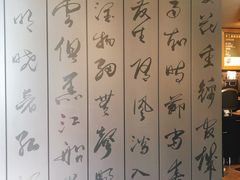 花重錦官城
雨知時節當春
發生隨風潛入
潤物細無聲
雲俱黑江船
明曉看紅